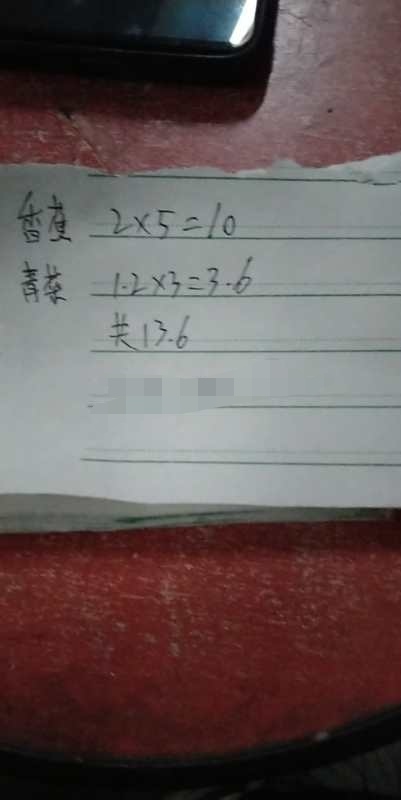 香蕉 2×5=10
青菜 1.2×3=3.6
共13.6